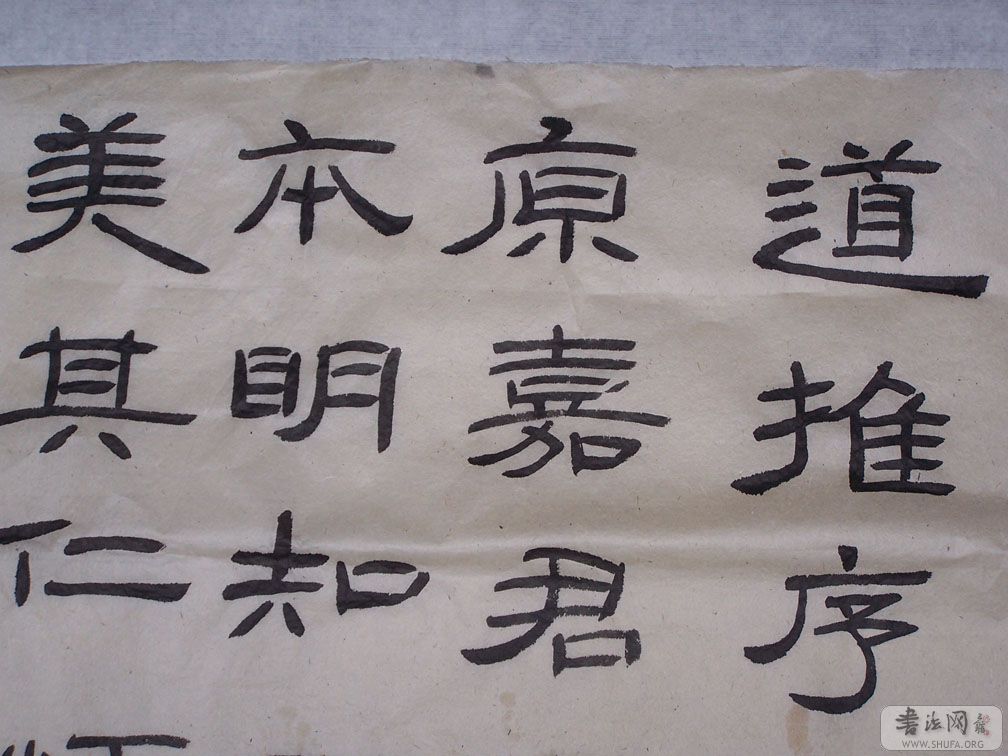 道推序
原嘉君
本明知
美其仁
书法网
WWW.SHUFA.ORG